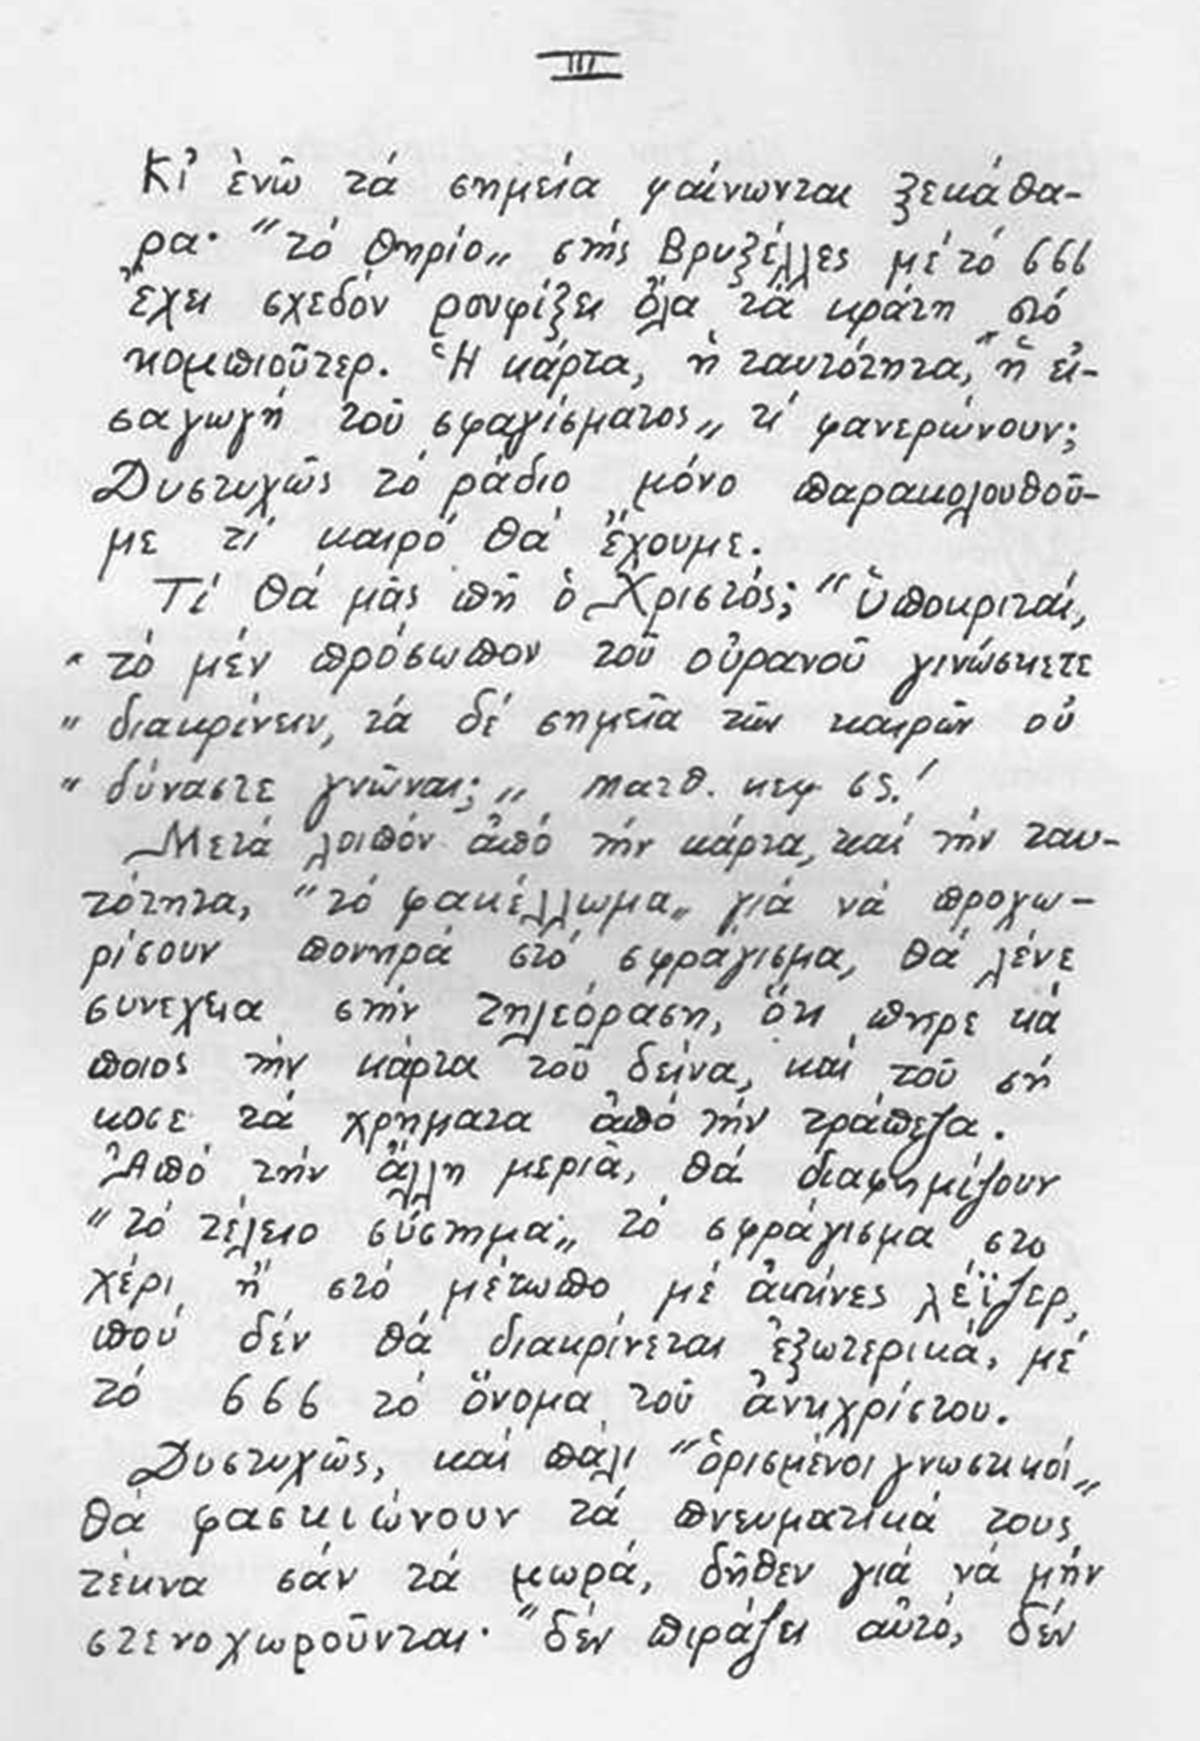 III
Κι' ἐνῶ τά σημεία φαίνωνται ξεκάθα-
ρα· "τό θηρίο„ στής Βρυξέλλες μέ τό 666
ἔχει σχεδόν ρουφίξει ὅλα τά κράτη στό
κομπιοῦτερ. Ἡ κάρτα, ἡ ταυτότητα, "ἡ εἰ-
σαγωγή τοῦ σφαγίσματος„ τί φανερώνουν;
Δυστυχῶς τό ράδιο μόνο παρακολουθοῦ-
με τί καιρό θά ἔχουμε.
Τί θά μᾶς πῆ ὁ Χριστός; "ὑποκριταί,
" τό μέν πρόσωπον τοῦ οὐρανοῦ γινώσκετε
" διακρίνειν, τά δέ σημεῖα τῶν καιρῶν οὐ
" δύναστε γνῶναι;„ Ματθ. κεφ ις.'
Μετά λοιπόν ἀπό τήν κάρτα, καί τήν ταυ-
τότητα, "τό φακέλλωμα„ γιά νά προχω-
ρίσουν πονηρά στό σφράγισμα, θά λένε
συνεχεια στήν τηλεόραση, ὅτι πηρε κά
ποιος τήν κάρτα τοῦ δείνα, καί τοῦ σή
κοσε τά χρήματα ἀπό τήν τράπεζα.
Ἀπό τήν ἄλλη μεριᾶ, θά διαφημίζουν
"τό τέλειο σύστημα„ τό σφράγισμα στο
χέρι ἤ στό μέτωπο μέ ἀκτίνες λέϊζερ,
πού δέν θά διακρίνεται ἐξωτερικά, μέ
τό 666 τό ὄνομα τοῦ ἀντιχρίστου.
Δυστυχῶς, καί πάλι "ὁρισμένοι γνωστικοί„
θά φασκιώνουν τά πνευματικά τους
τέκνα σάν τά μωρά, δῆθεν γιά νά μήν
στενοχωροῦνται· "δέν πιράζει αὐτό, δέν